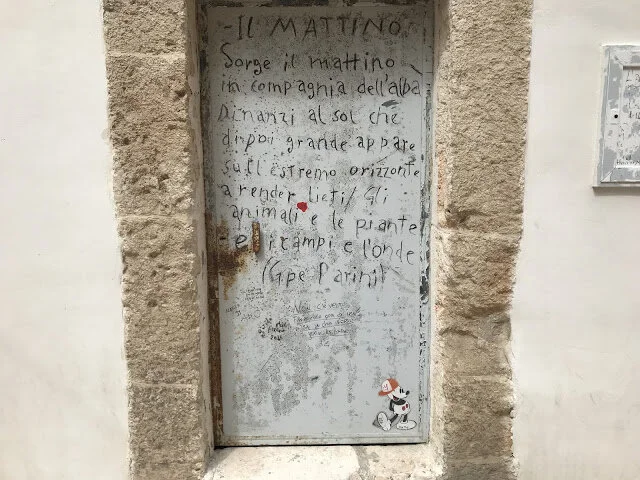 - IL MATTINO
Sorge il mattino
in compagnia dell'alba
Dinanzi al sol che
di poi grande appare
sull'estremo orizzonte
a render lieti/ Gli
animali e le piante
- e i campi e l'onde
(Gpe Parini)